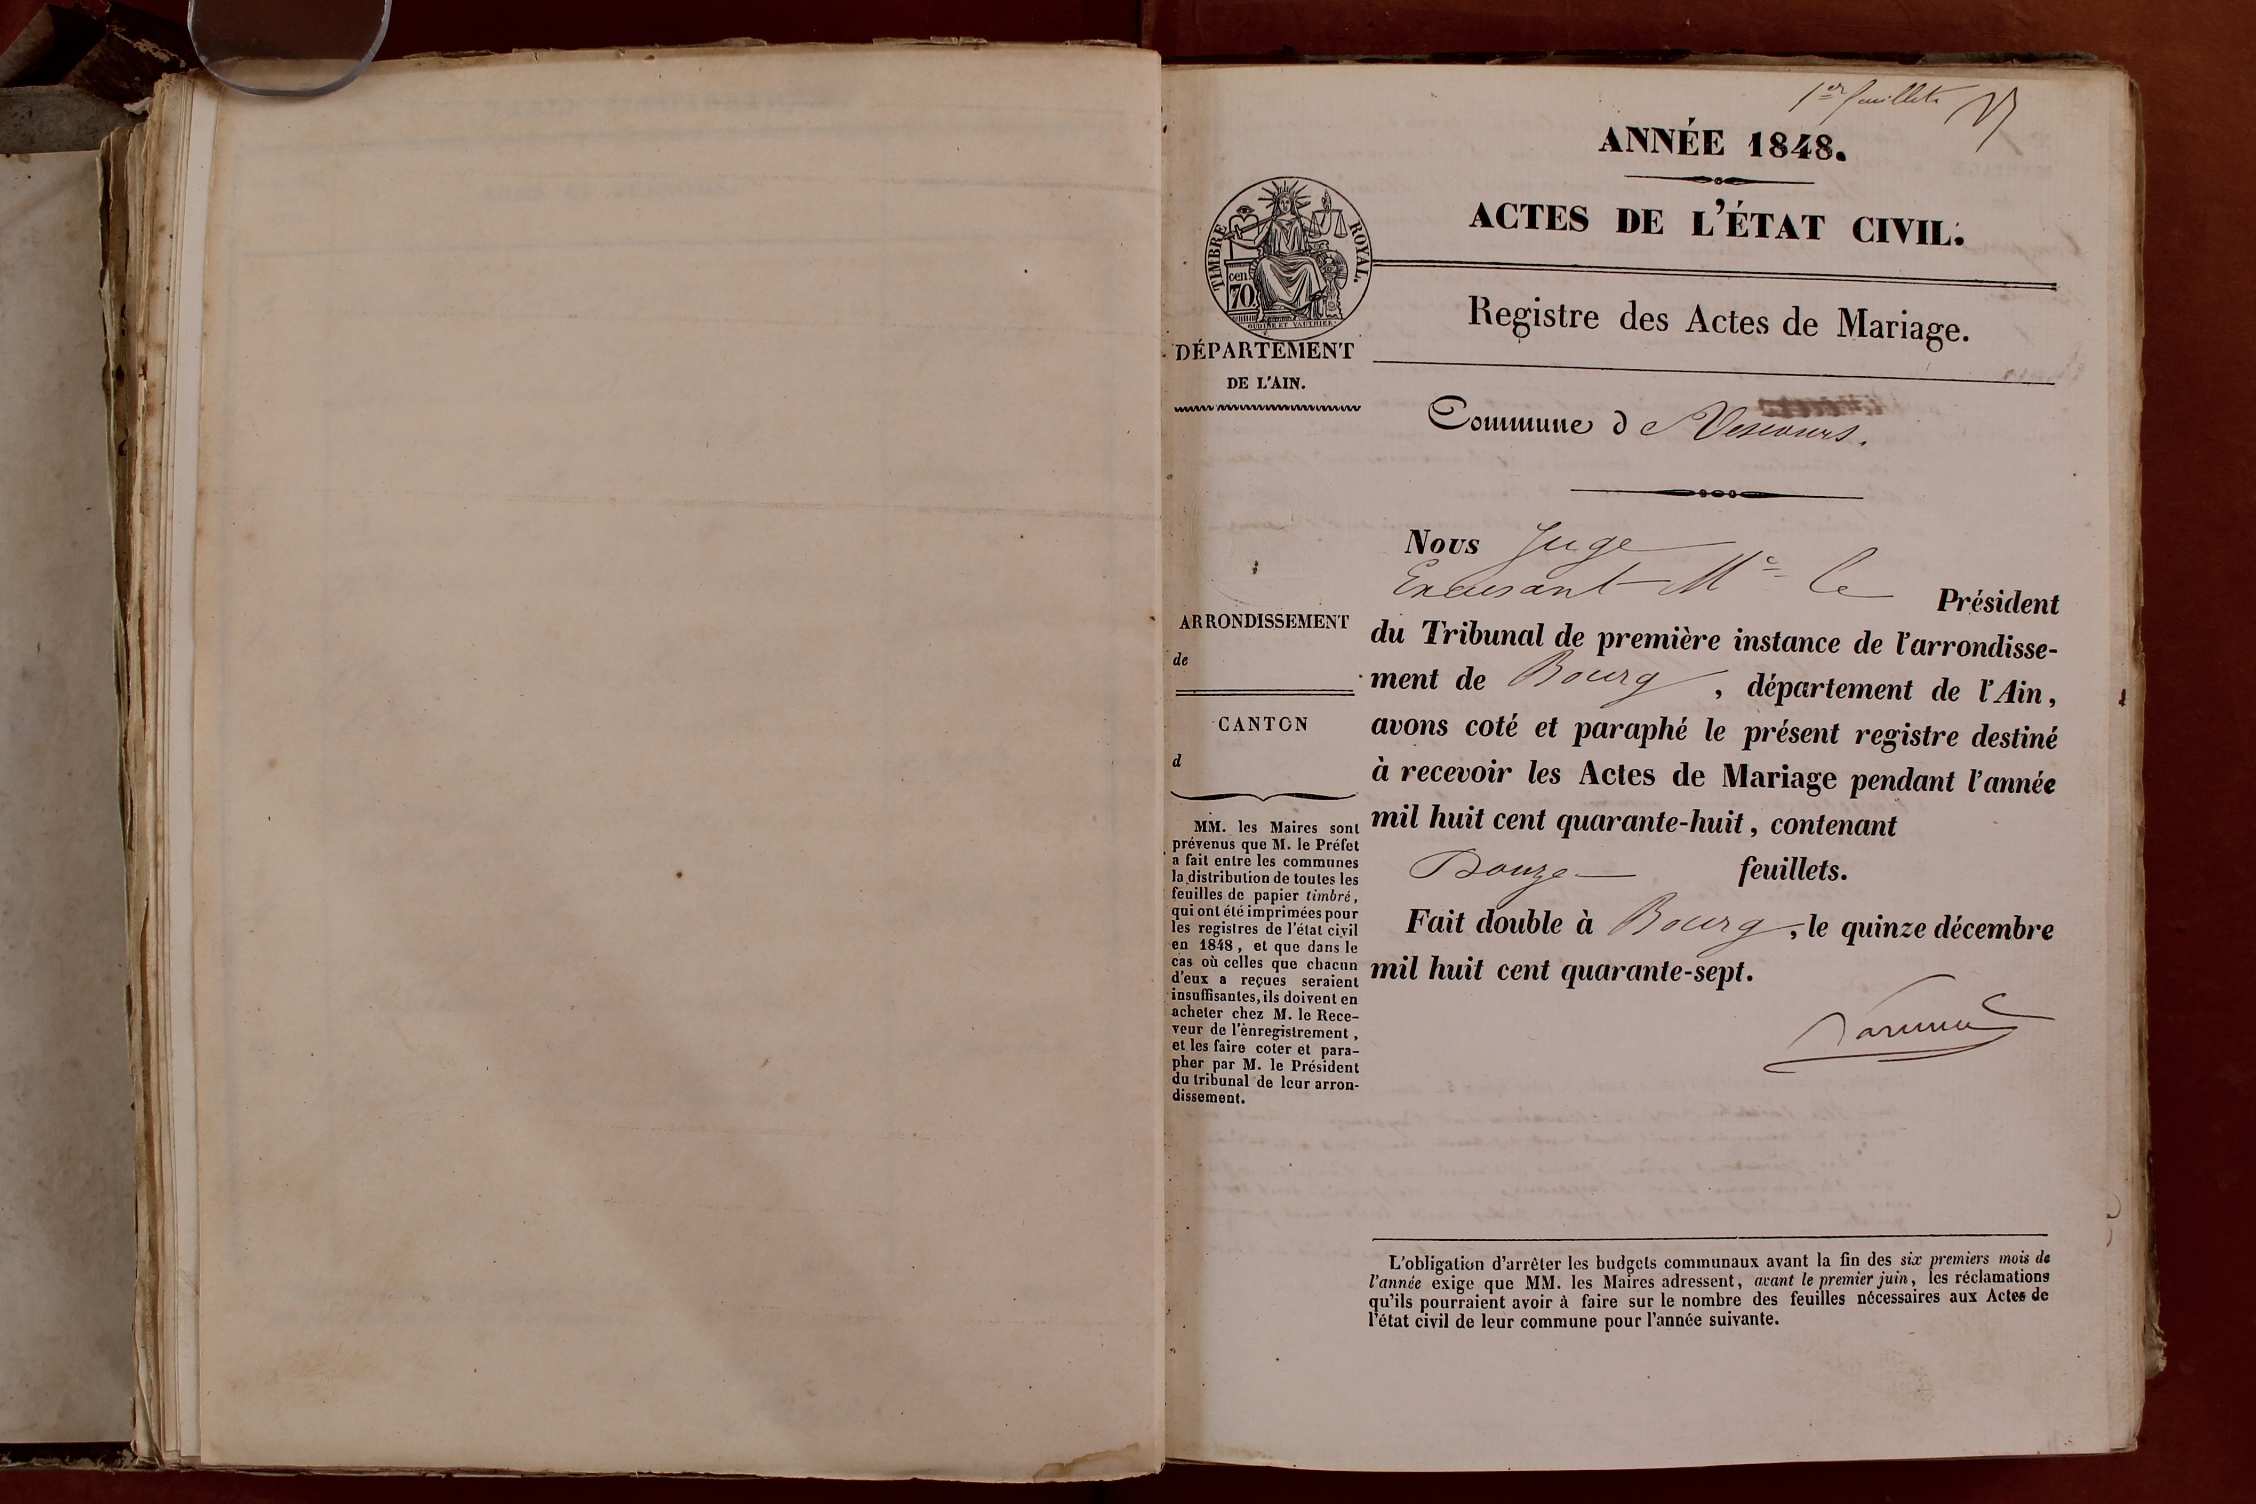 1er feuillet
ANNÉE 1848.
ACTES DE L'ÉTAT CIVIL.
TIMBRE ROYAL.
70 cen
OUDINÉ ET VAUTHIER
Registre des Actes de Mariage.
DÉPARTEMENT
DE L'AIN.
Commune de Vescours.
ARRONDISSEMENT
de
CANTON
d
MM. les Maires sont
prévenus que M. le Préfet
a fait entre les communes
la distribution de toutes les
feuilles de papier timbré,
qui ont été imprimées pour
les registres de l'état civil
en 1848, et que dans le
cas où celles que chacun
d'eux a reçues seraient
insuffisantes, ils doivent en
acheter chez M. le Rece-
veur de l'ènregistrement,
et les faire coter et para-
pher par M. le Président
du tribunal de leur arron-
dissement.
Nous Juge
Excusant Mr le Président
du Tribunal de première instance de l'arrondisse-
ment de Bourg, département de l'Ain,
avons coté et paraphé le présent registre destiné
à recevoir les Actes de Mariage pendant l'année
mil huit cent quarante-huit, contenant
Douze feuillets.
Fait double à Bourg, le quinze décembre
mil huit cent quarante-sept.
L'obligation d'arrêter les budgets communaux avant la fin des six premiers mois de
l'année exige que MM. les Maires adressent, avant le premier juin, les réclamations
qu'ils pourraient avoir à faire sur le nombre des feuilles nécessaires aux Actes de
l'état civil de leur commune pour l'année suivante.